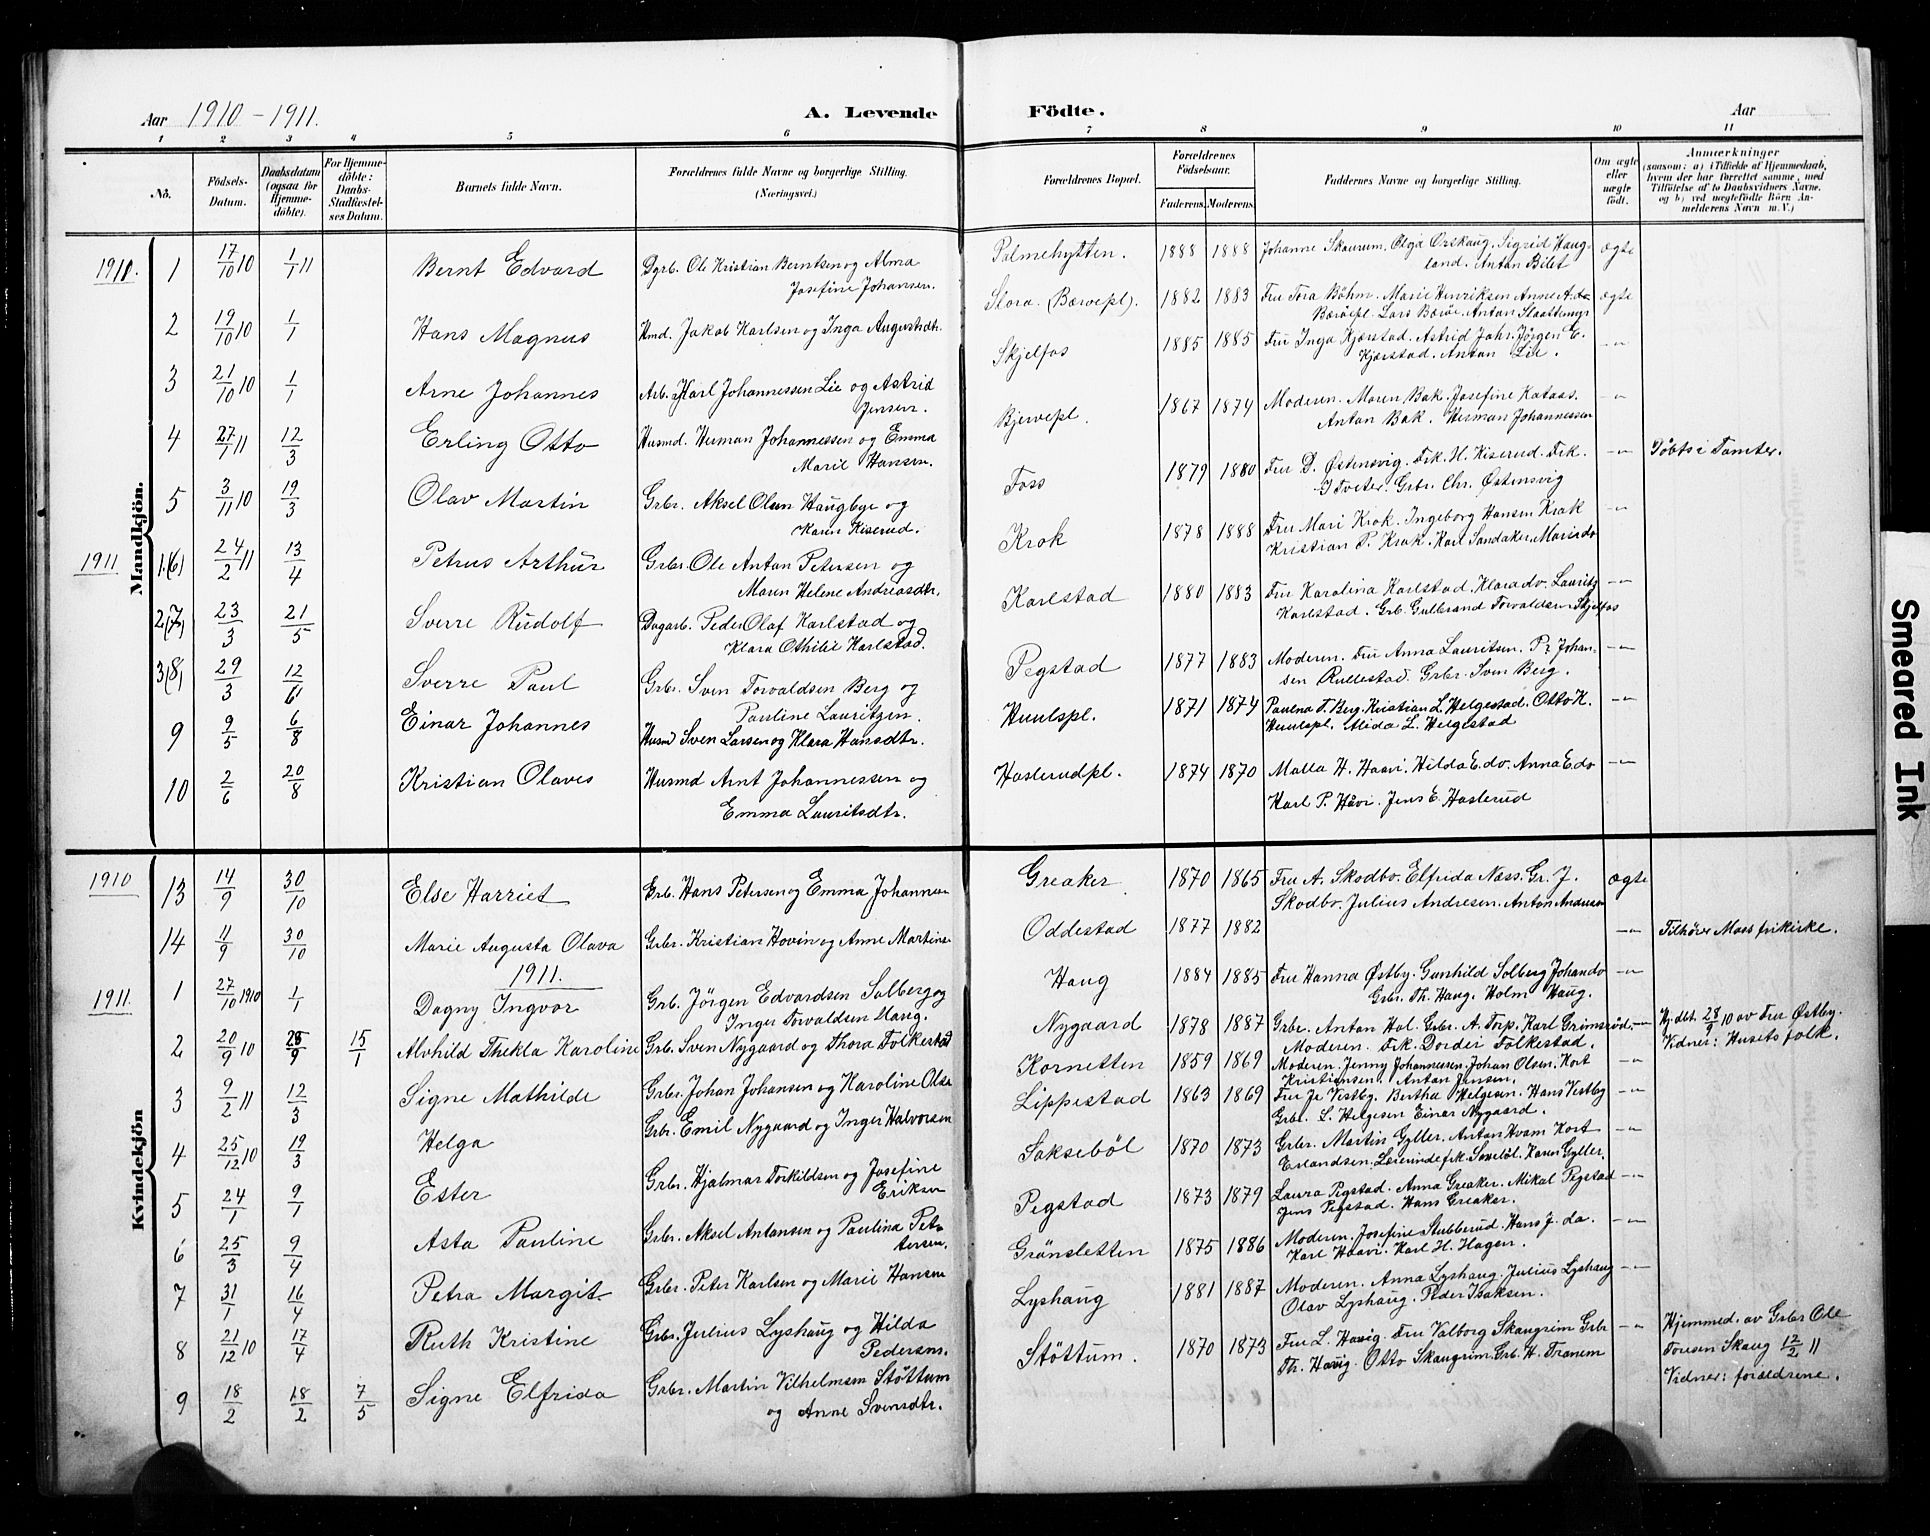 Aar 1910 - 1911. A. Levende Födte. Aar
1 2 3 4 5 6 7 8 9 10 11
No. Födsels-Datum. Daabsdatum (ogsaa for Hjemme-döbte). For Hjemme-döbte: Daabs-Stadfæstel-ses Datum. Barnets fulde Navn. Forældrenes fulde Navne og borgerlige Stilling. (Næringsvei.) Forældrenes Bopæl. Forældrenes Födselsaar. Faderens. Moderens. Faddernes Navne og borgerlige Stilling. Om ægte eller uægte födt. Anmærkninger
(saasom: a) i Tilfælde af Hjemmedaab, hvem der har forrettet samme, med Tilföielse af to Daabsvidners Navne, og b) ved uægtefödte Börn An-melderens Navn m. V.)
Mandkjön.
1910. 1 17/10 10 1/1 11 Bernt Edvard Dgrb. Ole Kristian Berntsen og Alma Josefine Johansen. Palmehytten. 1888 1888 Johanne Skaurum. Olga Ørskaug. Sigrid Haug-land. Anton Bilet ægte
2 19/10 10 1/1 Hans Magnus Hmd. Jakob Karlsen og Inga Augustdtr. Slora. (Bærøepl). 1882 1883 Fru Tora Böhm. Marie Henriksen Anne A. Bærøepl. Lars Bærøe. Anton ægte
3 21/10 10 1/1 Arne Johannes Arb. Karl Johannessen Lie og Astrid Jensen. Skjelfos 1885 1885 Fru Inga Kjærstad. Astrid Johr. Jørgen E. Kjærstad. Anton Lie. -"-
4 27/1 11 12/3 Erling Otto Husmd. Herman Johannessen og Emma Marie Hansen. Bjervepl. 1867 1874 Moderen. Maren Bak. Josefine Kataas. Anton Bak. Herman Johannessen -"- Döbts i Tomter.
5 3/11 10 19/3 Olav Martin Grbr. Aksel Olsen Haugbye og Karen Kiserud. Foss 1879 1880 Fru D. Østensvig. Frk. H. Kiserud. Frk. I Tveter. Grbr. Chr. Østensvig -"-
1911 1.(6) 24/2 11 13/4 Petrus Arthur Grbr. Ole Anton Petersen og Maren Helene Andreasdtr. Krok 1878 1888 Fru Mari Krok. Ingeborg Hansen Krok Kristian P. Krok. Karl Sandaker Marie do -"-
2(7) 23/3 21/5 Sverre Rudolf Dagarb. Peder Olaf Karlstad og Klara Othilie Karlstad. Karlstad 1880 1883 Fru Karolina Karlstad. Klara do. Lauritz Karlstad. Grb. Gulbrand Torvaldsen Skjelfos -"-
3(8) 29/3 12/6 Sverre Paul Grbr. Sven Torvaldsen Berg og Pauline Lauritzen. Pegstad 1877 1883 Moderen. Fru Anna Lauritsen. P. Johan-sen Rullestad. Grbr. Sven Berg. -"-
9 9/5 6/8 Einar Johannes Husmd Sven Larsen og Klara Hansdtr. Huulspl. 1871 1874 Paulna T. Berg. Kristian L. Helgestad. Otto K. Huulspl. Alida L. Helgestad -"-
10 2/6 20/8 Kristian Olaves Husmd Arnt Johannessen og Emma Lauritsdtr. Haslerudpl. 1874 1870 Malla H. Haavi. Hilda E. do. Anna E. do Karl P. Håvi. Jens E. Haslerud -"-
Kvindekjön
1910 13 14/9 30/10 Else Harriet Grb. Hans Petersen og Emma Johannesen Greaker 1870 1865 Fru A. Skodbo. Elfrida Næss. Gr. J. Skodbo. Julius Andresen. Anton Andersen ægte
14 11/9 30/10 Marie Augusta Olava Grbr. Kristian Hovin og Anne Martinsen Oddestad 1877 1882 -"- Tilhører Moss frikirke.
1911.
1911. 1 27/10 1910 1/1 Dagny Ingvor Grb. Jörgen Edvardsen Solberg og Inger Torvaldsen Haug. Haug 1884 1885 Fru Hanna Østby. Gunhild Solberg Johan do Grbr. Th. Haug. Holm Haug. -"-
2 20/9 10 28/9 15/1 Alvhild Thekla Karoline Grb. Sven Nygaard og Thora Folkestad Nygaard 1878 1887 Grbr. Anton Hol. Grbr. A. Torp. Karl Grimsrød. Moderen. Frk. Dordei Folkestad. -"- Hj. döt. 28/9 10 av Fru Østby. Vidner: Husets folk.
3 9/2 11 12/3 Signe Mathilde Grbr. Johan Johansen og Karoline Olsen Kornetten 1859 1869 Moderen. Jenny Johannessen. Johan Olsen. Kort Kristiansen. Anton Jensen. -"-
4 25/12 10 19/3 Helga Grbr. Emil Nygaard og Inger Halvorsen Lippestad 1863 1869 Fru Vestby. Bertha Helgesen. Hans Vestby Grbr. L. Helgesen Einar Nygaard. -"-
5 24/1 9/1 Ester Grbr. Hjalmar Torkildsen og Josefine Eriksen Saksebøl 1870 1873 Grbr. Martin Gyller. Anton Hvam Kort Erlandsen. Karen Gyller. -"-
6 25/3 9/4 Asta Pauline Grbr. Aksel Antonsen og Paulina Pet-tersen. Pegstad 1873 1879 Laura Pegstad. Anna Greaker. Mikal Pegstad Jens Pegstad. Hans Greaker. -"-
7 31/1 16/4 Petra Margit Grbr. Peter Karlsen og Marie Hansen Grönsletten 1875 1886 Moderen. Josefine Stubberud. Hans J. do. Karl Haavi. Karl H. Hagen. -"-
8 21/12 10 17/4 Ruth Kristine Grbr. Julius Lyshaug og Hilda Pedersen. Lyshaug 1881 1887 Moderen. Anna Lyshaug. Julius Lyshaug Olav Lyshaug. Peder Isaksen. -"-
9 18/2 18/2 7/5 Signe Elfrida Grbr. Martin Vilhelmsen Støttum og Anne Svensdtr. Støttum. 1870 1873 Fru L. Havig. Fru Valborg Skaugrim Grbr Th. Havig. Otto Skaugrim. Grb. H. Tranem -"- Hjemmed. av Grbr Ole Toresen Skaug 12/2 11 Vidner: forældrene.
Smeared Ink